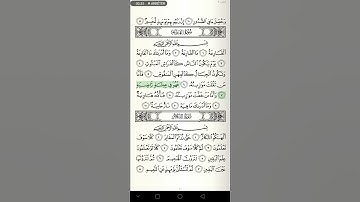 وَحُصِّلَ مَا فِي ٱلصُّدُورِ ۝ إِنَّ رَبَّهُم بِهِمْ يَوْمَئِذٍ لَّخَبِيرٌ ۝
سُورَةُ القَارِعَةِ
بِسْمِ ٱللَّهِ ٱلرَّحْمَٰنِ ٱلرَّحِيمِ
ٱلْقَارِعَةُ ۝ مَا ٱلْقَارِعَةُ ۝ وَمَآ أَدْرَىٰكَ مَا ٱلْقَارِعَةُ ۝
يَوْمَ يَكُونُ ٱلنَّاسُ كَٱلْفَرَاشِ ٱلْمَبْثُوثِ ۝
وَتَكُونُ ٱلْجِبَالُ كَٱلْعِهْنِ ٱلْمَنفُوشِ ۝ فَأَمَّا
مَن ثَقُلَتْ مَوَٰزِينُهُۥ ۝ فَهُوَ فِي عِيشَةٍ رَّاضِيَةٍ
۝ وَأَمَّا مَنْ خَفَّتْ مَوَٰزِينُهُۥ ۝ فَأُمُّهُۥ هَاوِيَةٌ
۝ وَمَآ أَدْرَىٰكَ مَا هِيَهْ ۝ نَارٌ حَامِيَةٌۢ ۝
سُورَةُ التَّكَاثُرِ
بِسْمِ ٱللَّهِ ٱلرَّحْمَٰنِ ٱلرَّحِيمِ
أَلْهَىٰكُمُ ٱلتَّكَاثُرُ ۝ حَتَّىٰ زُرْتُمُ ٱلْمَقَابِرَ ۝ كَلَّا سَوْفَ
تَعْلَمُونَ ۝ ثُمَّ كَلَّا سَوْفَ تَعْلَمُونَ ۝ كَلَّا لَوْ تَعْلَمُونَ
عِلْمَ ٱلْيَقِينِ ۝ لَتَرَوُنَّ ٱلْجَحِيمَ ۝ ثُمَّ لَتَرَوُنَّهَا
عَيْنَ ٱلْيَقِينِ ۝ ثُمَّ لَتُسْـَٔلُنَّ يَوْمَئِذٍ عَنِ ٱلنَّعِيمِ ۝